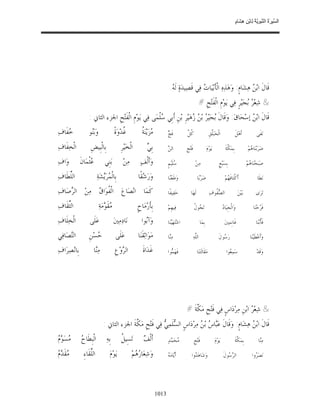 السّيرَة النّبَويّة لابْن هِشَام
قَالَ ابْنُ هِشَامٍ وَهَذِهِ الْأَبْيَاتُ فِي قَصِيدَةٍ لَهُ
& شِعْرُ بُجَيْرٍ فِي يَوْمِ الْفَتْحِ #
قَالَ ابْنُ إسْحَاقَ وَقَالَ بُجَيْرُ بْنُ زُهَيْرِ بْنِ أَبِي سُلْمَى فِي يَوْمِ الْفَتْحِ الجزء الثاني
نَفَى أَهْلَ الْحَبَلّقِ كُلّ فَجّ مُزَيْنَةُ غُدْوَةً وَبَنُو خُفَافِ
ضَرَبْنَاهُمْ بِمَكّةَ يَوْمَ فَتْحِ النّ بِيّ الْخَيْرِ بِالْبِيضِ الْخِفَافِ
صَبَحْنَاهُمْ بِسَبْعٍ مِنْ سُلَيْمٍ وَأَلْفٍ مِنْ بَنِي عُثْمَانَ وَافِ
نَطَا أَكْتَافَهُمْ ضَرْبًا وَطَعْنًا وَرَشْقًا بِالْمُرَيّشَةِ اللّطَافِ
تَرَى بَيْنَ الصّفُوفِ لَهَا حَفِيفًا كَمَا انْصَاعَ الْفُوَاقُ مِنْ الرّصَافِ
فَرُحْنَا وَالْجِيَادُ تَجُولُ فِيهِمْ بِأَرْمَاحٍ مُقَوّمَةِ الثّقَافِ
فَأُبْنَا غَانِمِينَ بِمَا اشْتَهَيْنَا وَآبُوا نَادِمِينَ عَلَى الْخِلَافِ
وَأَعْطَيْنَا رَسُولَ اللّهِ مِنّا مَوَاثِقَنَا عَلَى حُسْنِ التّصَافِي
وَقَدْ سَمِعُوا مَقَالَتَنَا فَهَمّوا غَدَاةَ الرّوْعِ مِنّا بِانْصِرَافِ
& شِعْرُ ابْنِ مِرْدَاسٍ فِي فَتْحِ مَكّةَ #
قَالَ ابْنُ هِشَامٍ وَقَالَ عَبّاسُ بْنُ مِرْدَاسٍ السّلَمِيّ فِي فَتْحِ مَكّةَ الجزء الثاني
مِنّا بِمَكّةَ يَوْمَ فَتْحِ مُحَمّدٍ أَلْفٌ تَسِيلُ بِهِ الْبِطَاحُ مُسَوّمُ
نَصَرُوا الرّسُولَ وَشَاهَدُوا أَيّامَهُ وَشِعَارُهُمْ يَوْمَ اللّقَاءِ مُقَدّمُ
1013